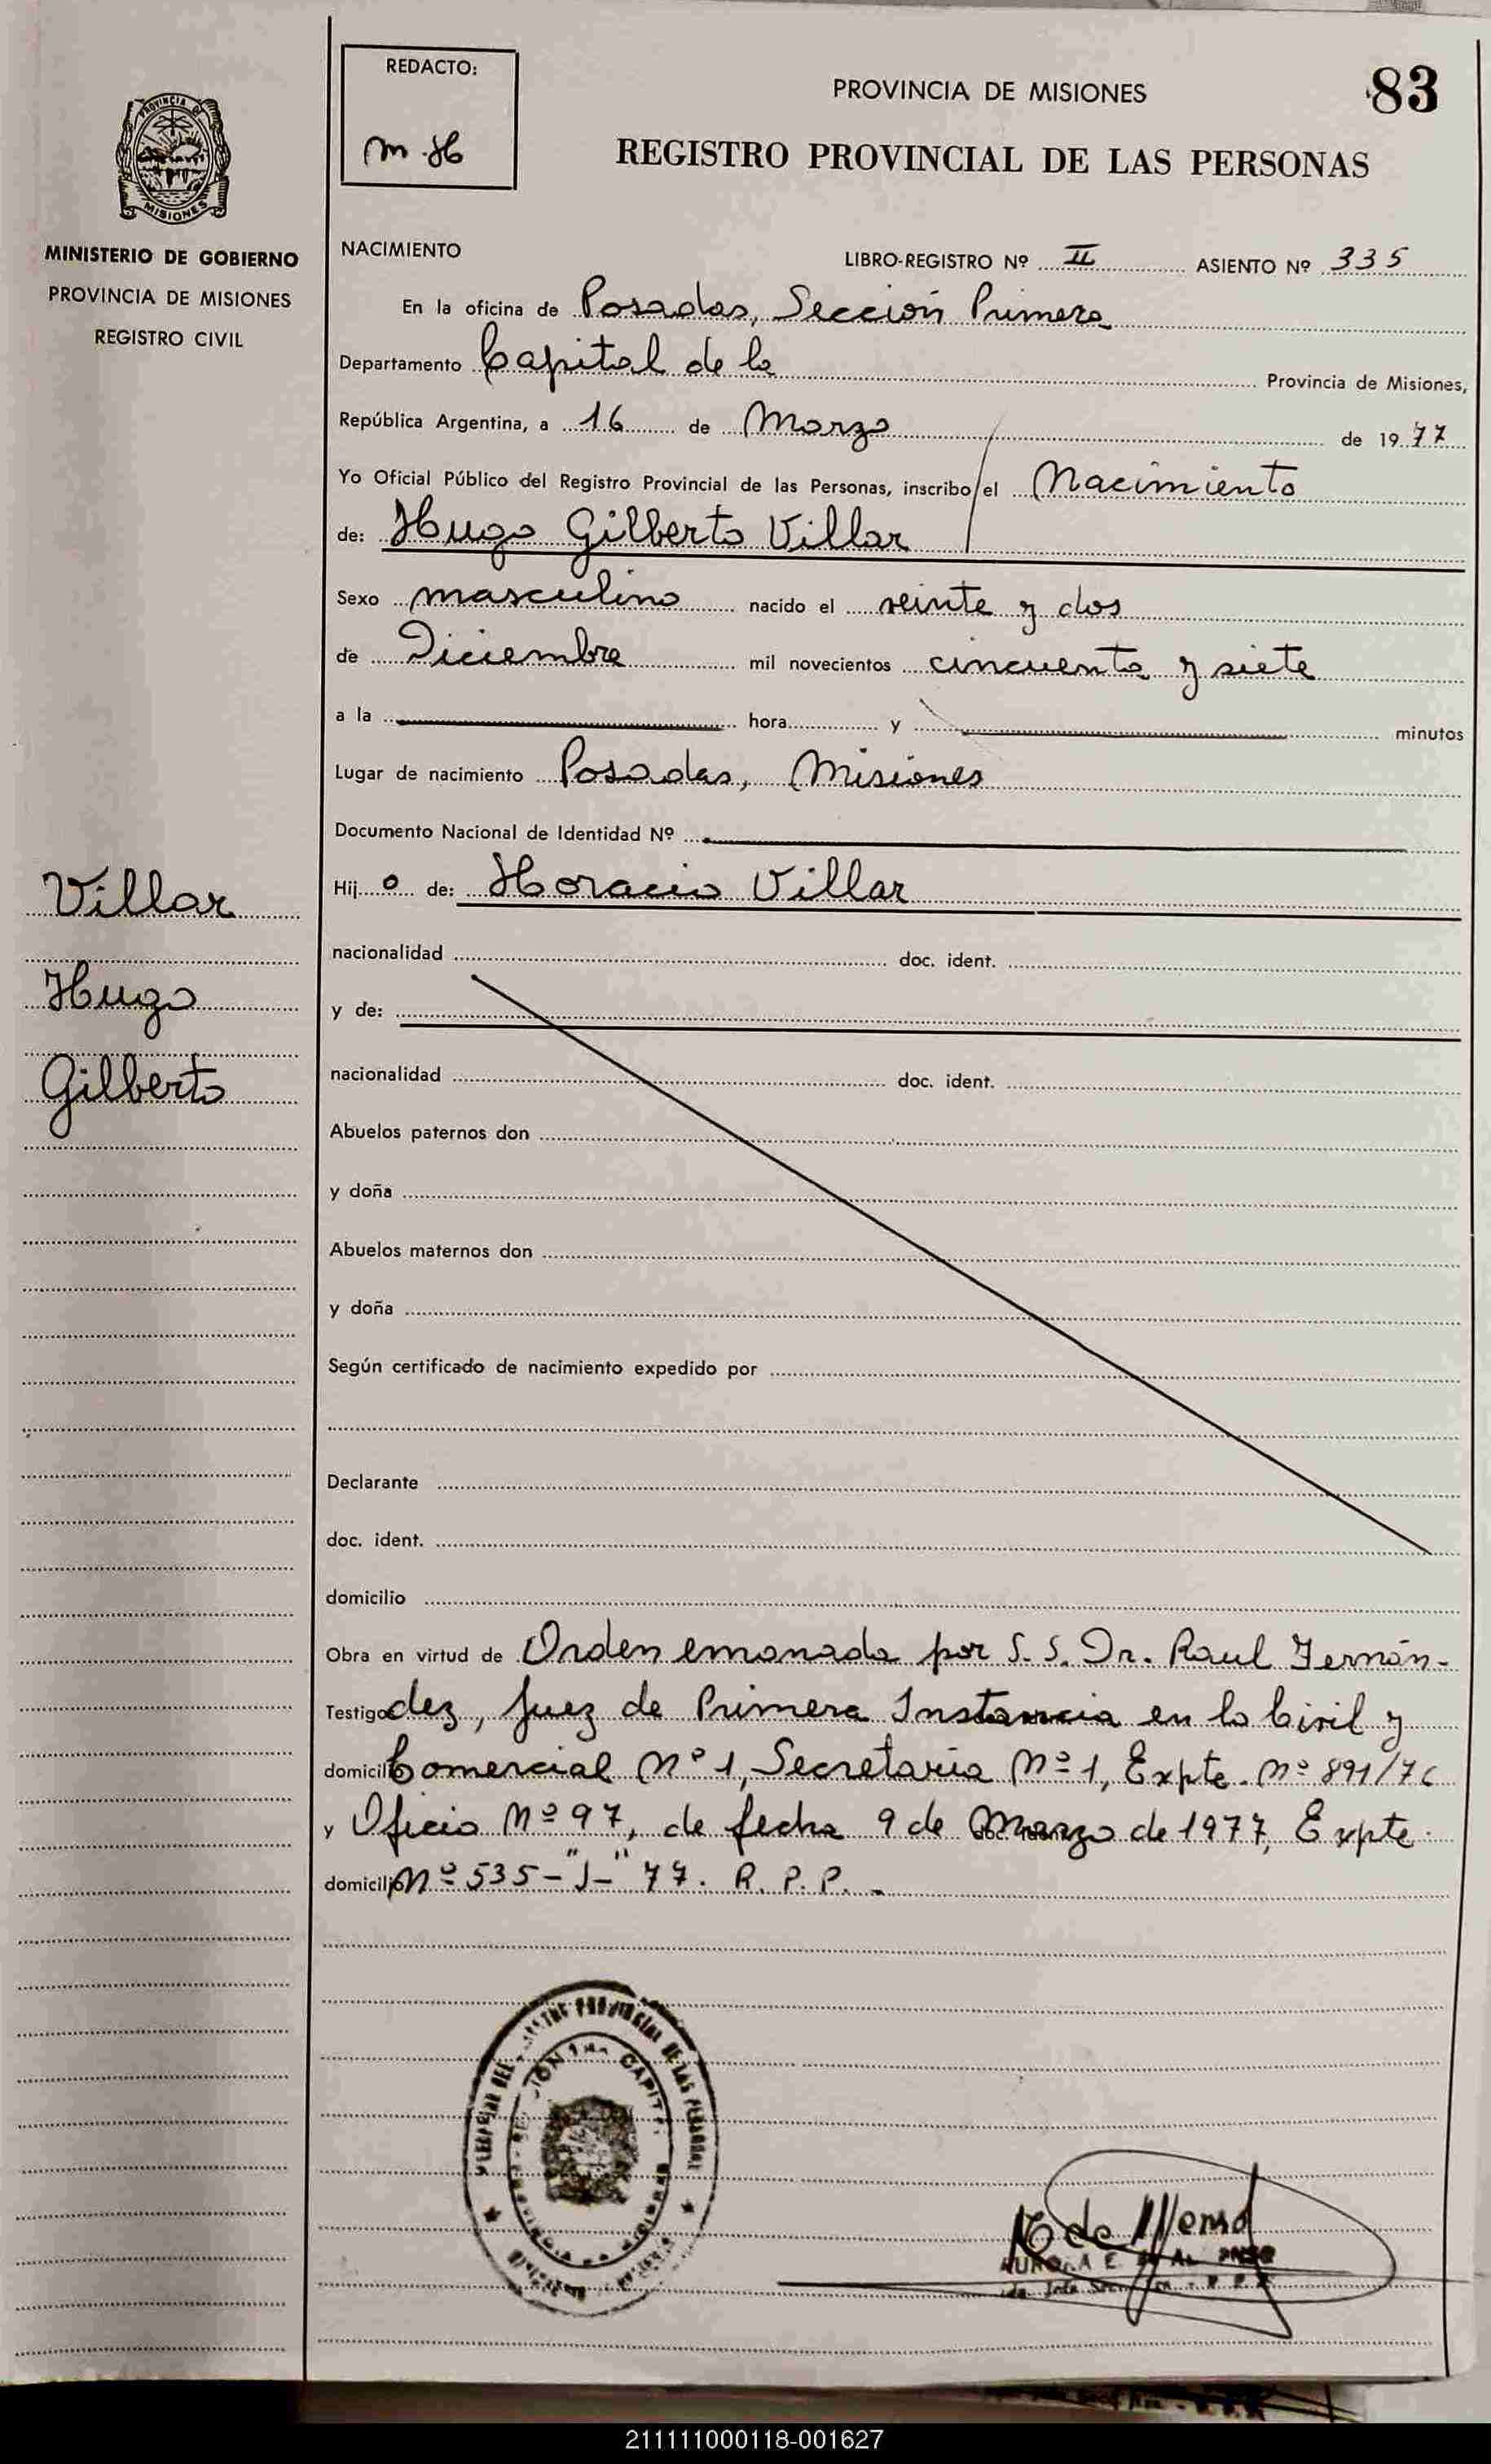 REDACTO:
m.H
PROVINCIA DE MISIONES
83
REGISTRO PROVINCIAL DE LAS PERSONAS
PROVINCIA DE
MISIONES
MINISTERIO DE GOBIERNO
PROVINCIA DE MISIONES
REGISTRO CIVIL
NACIMIENTO
LIBRO-REGISTRO Nº II ASIENTO Nº 335
En la oficina de Posadas, Sección Primera
Departamento Capital de la Provincia de Misiones,
República Argentina, a 16 de Marzo de 1977
Yo Oficial Público del Registro Provincial de las Personas, inscribo el Nacimiento
de: Hugo Gilberto Villar
Sexo masculino nacido el veinte y dos
de Diciembre mil novecientos cincuenta y siete
a la hora y minutos
Lugar de nacimiento Posadas, Misiones
Documento Nacional de Identidad Nº
Hijo de: Horacio Villar
Villar
Hugo
Gilberto
nacionalidad doc. ident.
y de:
nacionalidad doc. ident.
Abuelos paternos don
y doña
Abuelos maternos don
y doña
Según certificado de nacimiento expedido por
Declarante
doc. ident.
domicilio
Obra en virtud de Orden emanada por S. S. Dr. Raul Fernán-
Testigo dez, Juez de Primera Instancia en lo Civil y
domicili Comercial Nº 1, Secretaria Nº 1, Expte. Nº 891/76
y Oficio Nº 97, de fecha 9 de Marzo de 1977, Expte.
domicilio Nº 535-"J-" 77. R. P. P. -
PROVINCIAL DE LAS PERSONAS
CAPIT
211111000118-001627